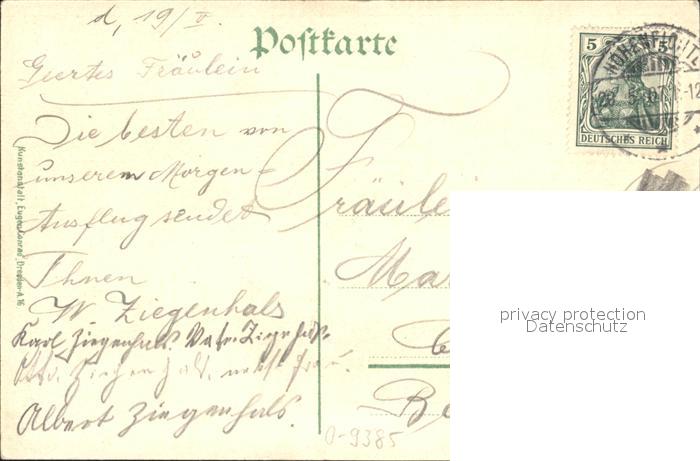 d, 19/V.
Postkarte
Geertes Fräulein
Die besten von
unserem Morgen-
Ausflug sendet
Ihnen
W Ziegenhals
Karl Ziegenhals
Albert Ziegenhals.
Kunstanstalt, Eugen Konrad, Dresden-A. 16
5 5
DEUTSCHES REICH
Fräulei
Ma
Be
0-9385
privacy protection
Datenschutz